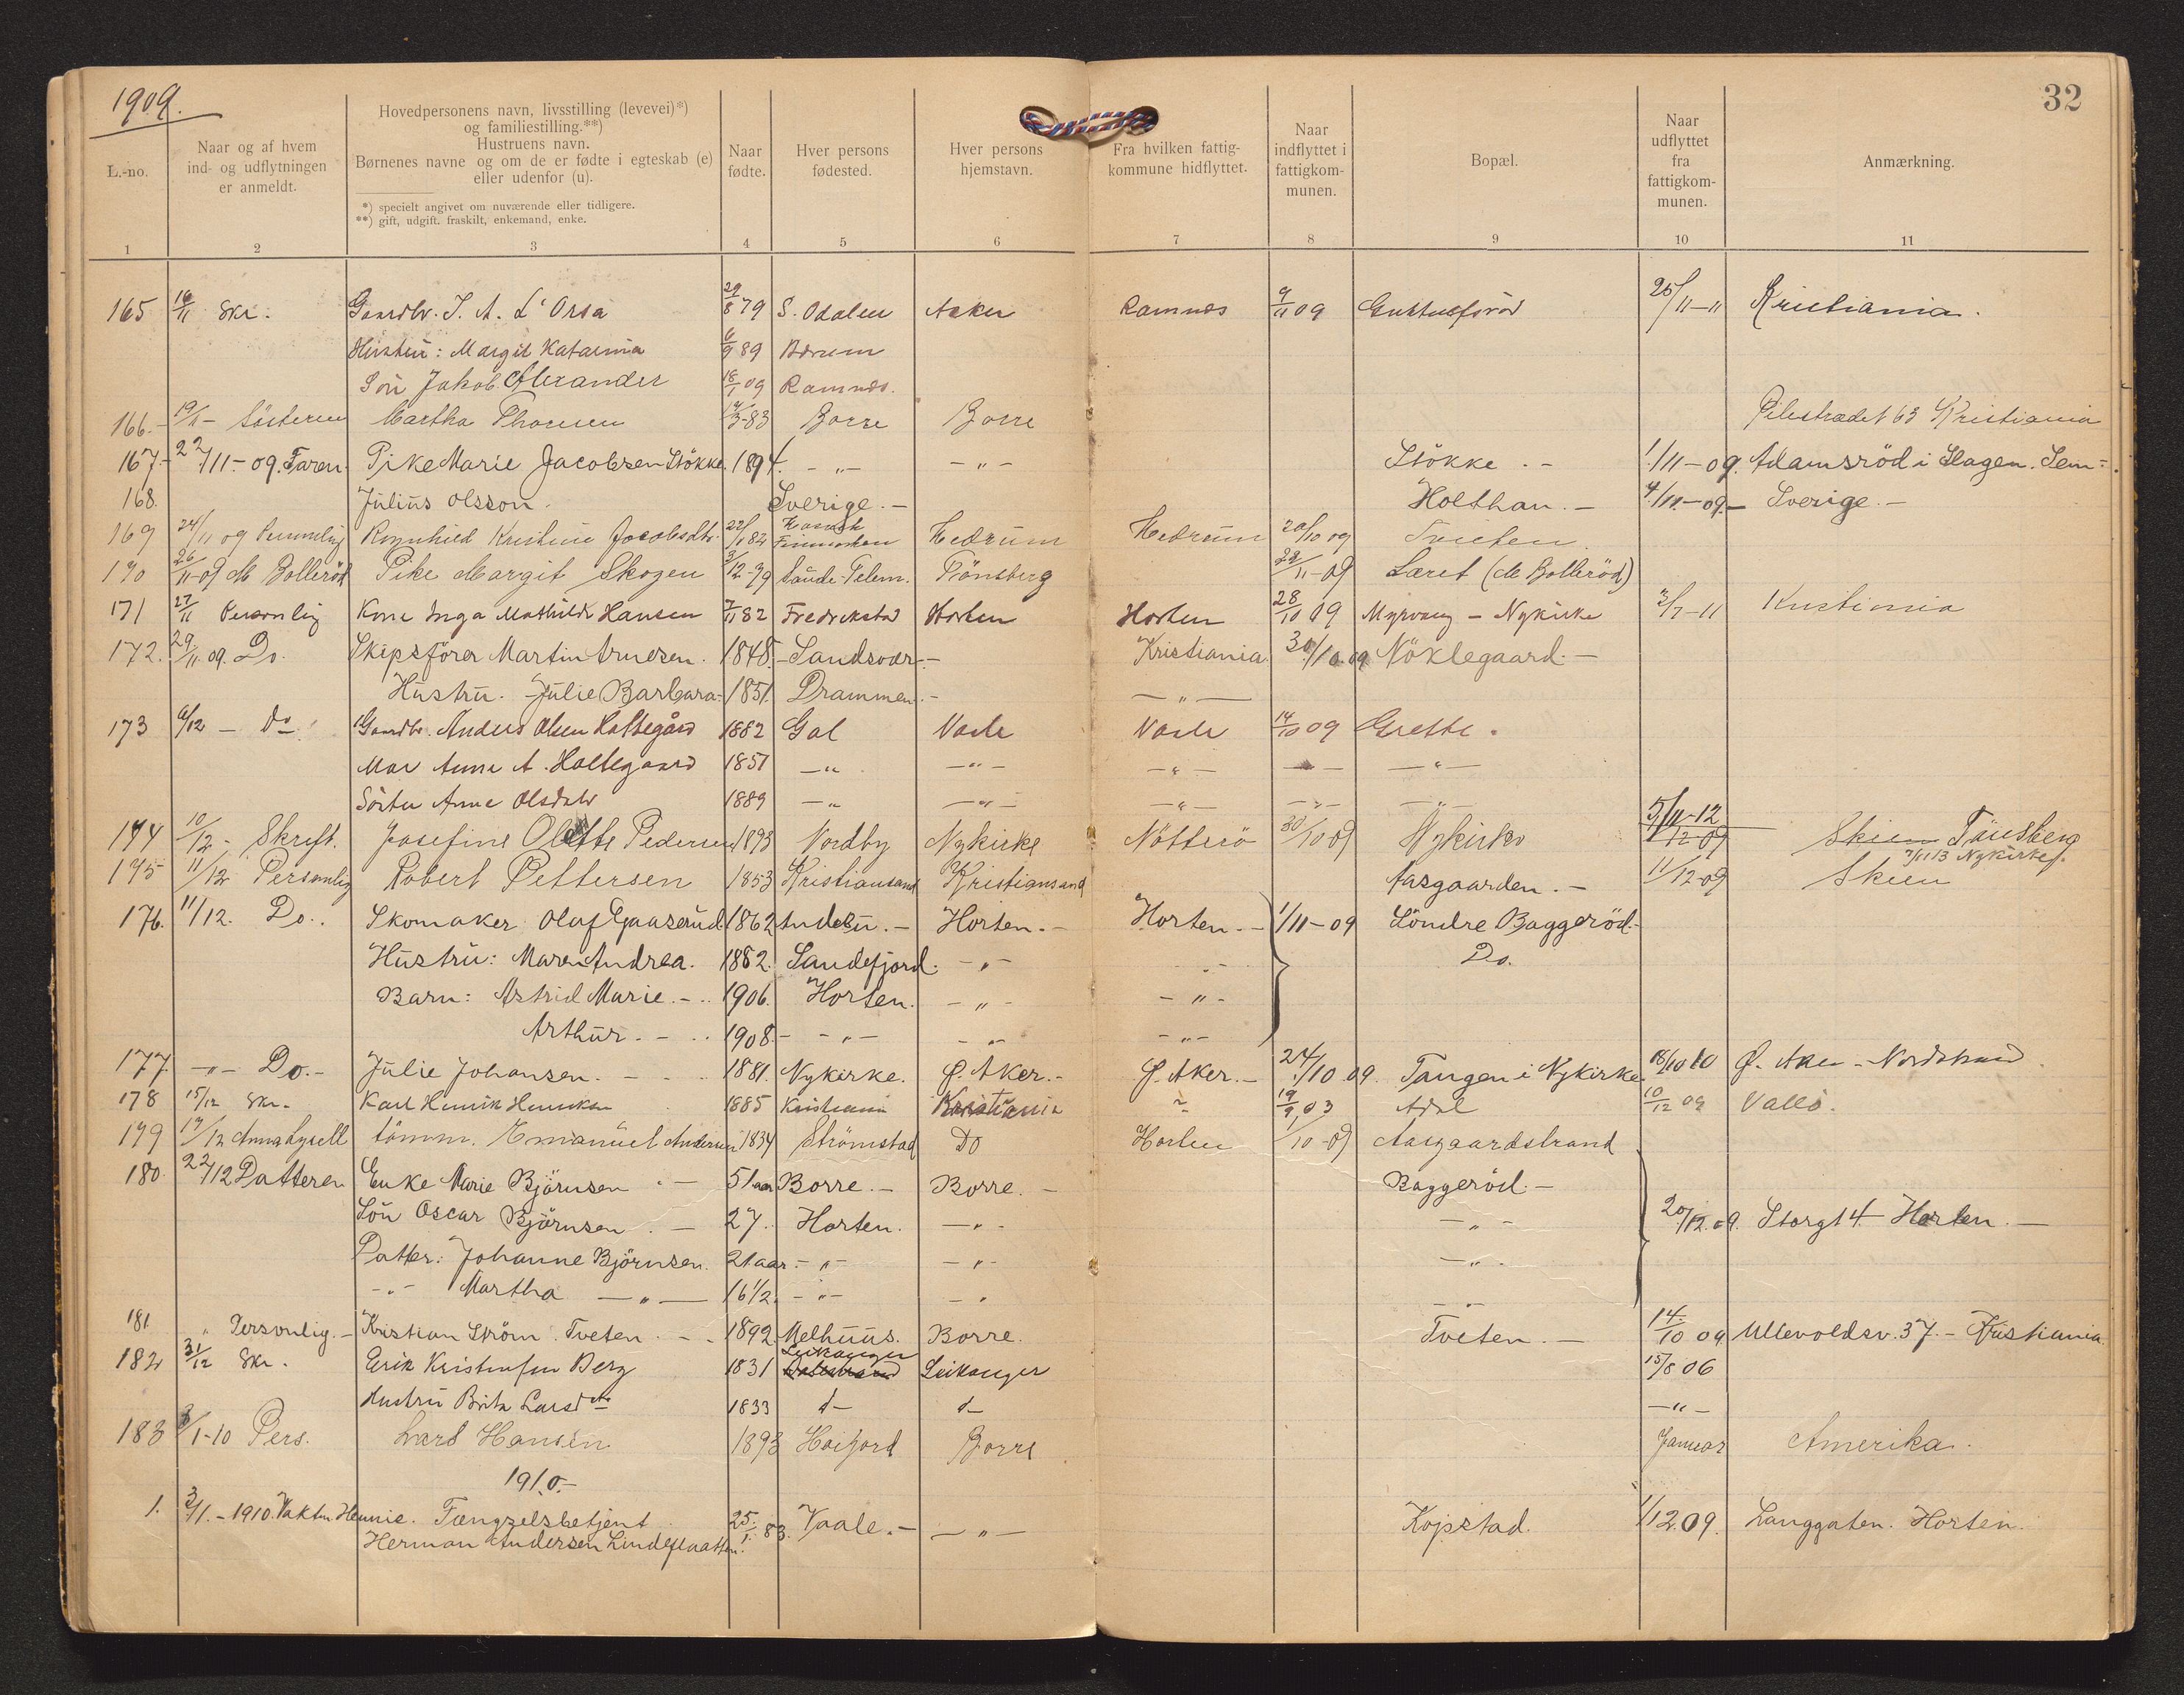 1909.
32
L.-no.
Naar og af hvem ind- og udflytningen er anmeldt.
Hovedpersonens navn, livsstilling (levevei)*) og familiestilling.**)
Hustruens navn.
Børnenes navne og om de er fødte i egteskab (e) eller udenfor (u).
*) specielt angivet om nuværende eller tidligere.
**) gift, udgift. fraskilt, enkemand, enke.
Naar fødte.
Hver persons fødested.
Hver persons hjemstavn.
Fra hvilken fattigkommune hidflyttet.
Naar indflyttet i fattigkommunen.
Bopæl.
Naar udflyttet fra fattigkommunen.
Anmærkning.
1 2 3 4 5 6 7 8 9 10 11
165 Skr. Gaardbr. J. A. L'Orsa 29/8 79 S. Odalen Asker Ramnes 9/11 09 25/11-11 Kristiania.
Hustru: Margit Katarina 6/9 89 Bærum
Sön Jakob Alexander 18/1 09 Ramnes.
166.- 19/11- Söstersen Martha Thorsen 83 Borre Borre Pilestrædet 63 Kristiania
167.- 22/11.-09. Faren Pike Marie Jacobsen Stökke. 1894. -„- -„- Stökke.- 1/11-09. Adamsröd i Slagen. Sem-.
168. Julius Olsson. Sverige.- Holthan.- 4/11.-09.- Sverige.-
169 24/11 09 Personlig Ragnhild Kristine Jacobsdtr. 22/1 82 Hedrum Hedrum 20/10 09 Tveten.
170 26/11-09 M Bollerød Pike Margit Skogen 3/12-79 Saude Telem. Tönsberg 22/11-09 Læret (M Bolleröd)
171 27/11 Personlig Kone Inga Mathilde Hansen 7/11 82 Fredrikstad Horten Horten 28/10 09 Myrvang - Nykirke 3/7-11 Kristiania
172. 29/11.09. Do. Skipsförer Martin Arnesen. 1848.- Sandsvær.- Kristiania 30/10.09 Nöklegaard.-
Hustru.- Julie Barbara. 1851. Drammen.- -„-
173 6/12 - Do Gaardbr. Anders Olsen Haltegård 1882 Gol Vaale Vaale 14/10 09 Grette.
Mor Anne A. Haltegaard 1851 -„- -„- -„- -„- -„-
Söster Anne Olsdatr 1889 -„- -„- -„- -„- -„-
174 10/12- Skrift. Josefine Olette Pedersen 1893 Nordby Nykirke Nötterö 30/10 09 Nykirke 5/11-12 /12-09 Skien Tönsberg
7/11 13 Nykirke.
175 11/12 Personlig Robert Pettersen 1853 Kristiansand Kristiansand Aasgaarden.- 11/12-09 Skien
176. 11/12. Do. Skomaker Olaf Gaaserud 1862 Andebu.- Horten.- Horten.- 1/11-09 Söndre Baggeröd.-
Hustru: Maren Andrea. 1882. Sandefjord. -„- -„- Do.
Barn: Astrid Marie.- 1906. Horten. -„- -„-
Arthur.- 1908.- -„- -„- -„-
177. -„- Do.- Julie Johansen.- 1881. Nykirke. Ø. Aker.- Ø. Aker.- 24/10.09. Tangen i Nykirke. 18/10 10 Ø. Aker - Nordstrand
178 15/12 Skr. Karl Henrik Henriksen 1885 Kristiania Kristiania 19/9 03 Adal 10/12 09 Vallö.
179 17/12 Anna Lysell tömm. Emanuel Andersen 1834 Strömstad Do Horten 1/10-09 Aasgaardstrand
180. 22/12 Datteren Enke Marie Björnsen - 51 aar Borre.- Borre.- Baggeröd.-
Sön Oscar Björnsen.- 27. Horten. -„- -„- 20/12.09. Storgt 4 Horten.-
Datter: Johanne Björnsen. 21 aar -„- -„- -„-
-„- Martha -„- 16 1/2. -„- -„- -„-
181 „ Personlig.- Kristian Ström. Tveten.- 1892. Melhuus. Borre. Tveten.- 14/10 09 Ullevoldsv. 37.- Kristiania
182 31/12 Skr. Erik Kristensen Berg 1831 Leikanger Leikanger 15/8 06
Hustru Brita Larsdtr 1833 d- d- -„-
183 3/1-10 Pers. Lars Hansen 1893 Hoifjord Borre Januar Amerika.
1910.-
1. 3/1.-1910. Vaktm Hennie. Fængselsbetjent 25/1. 83. Vaale.- -„- Kopstad. 1/12.09. Langgaten. Horten.
Herman Andersen Lindeflaatten.